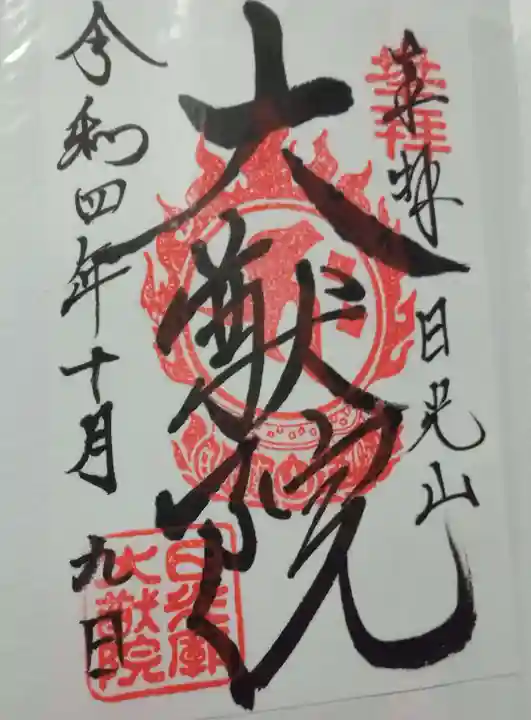 奉拝
日光山
大猷院
令和四年十月九日
日光廟
大猷院